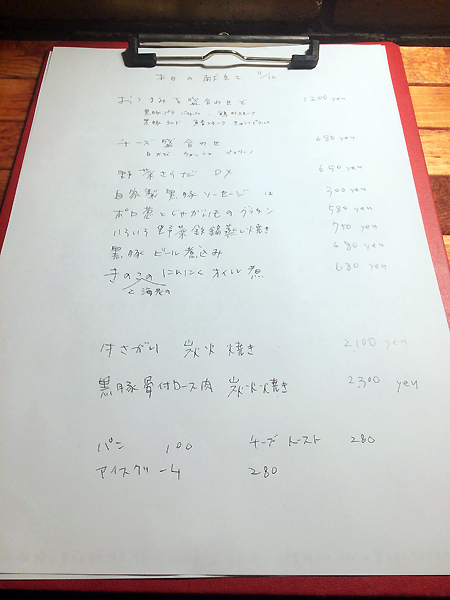 本日の献立 11/12
おつまみ盛合わせ 1200 yen
黒豚
黒豚
チーズ盛合わせ 680 yen
野菜さらだ DX 650 yen
自家製黒豚ソーセージ 300 yen
ポロ葱とじゃがいものグラタン 580 yen
いろいろ野菜鉄鍋蒸し焼き 780 yen
黒豚 ビール煮込み 680 yen
きのこの にんにく オイル煮 680 yen
と海老の
はさがり 炭火焼き 2,100 yen
黒豚骨付ロース肉 炭火焼き 2,300 yen
パン 100 チーズトースト 280
アイスクリーム 280